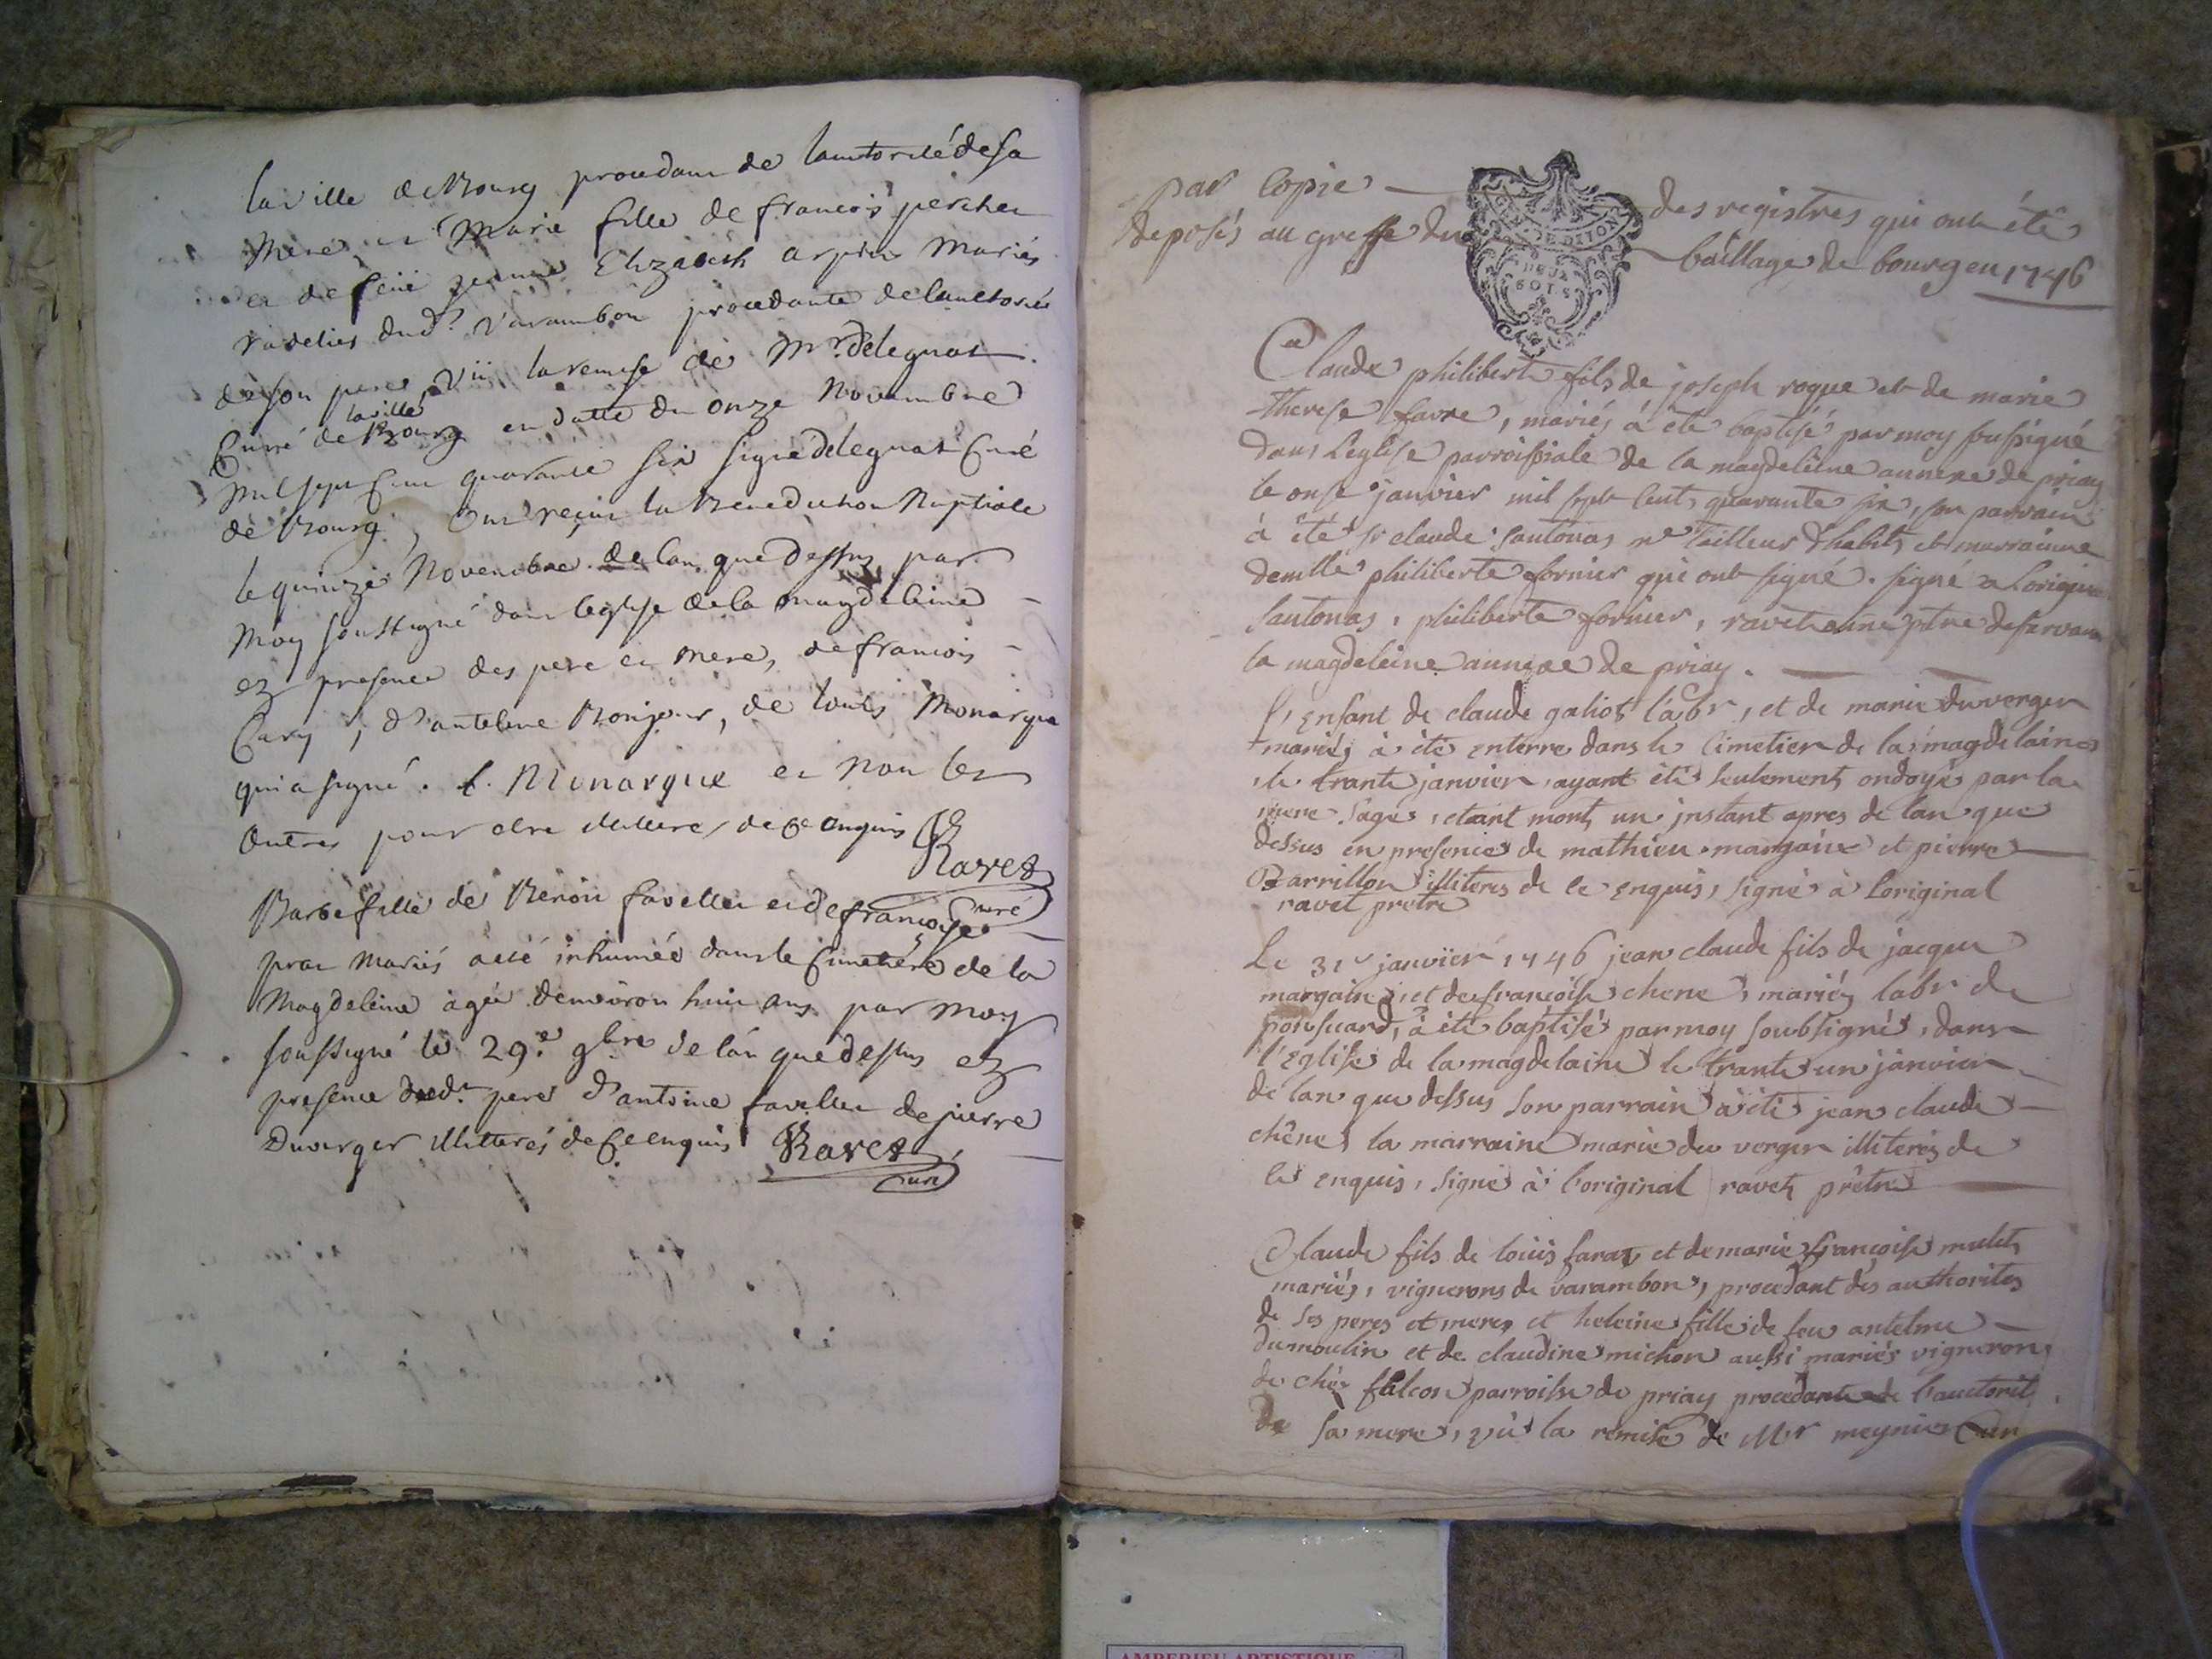 la ville de Bourg procedant de lauthorité de sa
Mere, et Marie fille de francois percher
et de feüe jeanne Elizabeth arpin Mariés
dud.t Varambon procedante de lauthorité
de son pere, vü la remise de Mr. Delegnat
Curé de la ville Bourg en datte du onze Novembre
mil sept Cent quarante six signé Delegnat Curé
de Bourg, ont reçus la Benediction Nuptiale
le quinze Novembre de lan que dessus par
Moy soussigné dans leglise de la magdeleine
ez presence des pere et mere, de francois
Cury, d'antelme Bonjour, de louis Monarque
qui a signé. l. Monarque et non les
autres pour etre illiteres de ce enquis
Ravet
curé
Barbe fille de Benoit favellet et de francoise
prax Mariés a eté inhumée dans le Cimetiére de la
Magdeleine agée denviron huit ans par moy
soussigné le 29.e 9bre de lan que dessus ez
presence dud.t pere d'antoine favellet de pierre
Duverger illitterés de Ce enquis Ravet
curé
par Copie des registres qui ont été
deposés au greffe du baillage de bourg en 1746
GEN DE DIJON
DEUX
SOLS
Claude philibert fils de joseph roque et de marie
therese favre, mariés à été baptisé par moy soussigné
dans L'eglise parroissiale de la magdeleine annexe de priay
le onse janvier mil sept cent quarante six, son parrain
à été sr claude santonas me tailleur d'habits et marrainne
demlle philiberte fornier qui ont signé. signé a Loriginal
santonas, philiberte fornier, ravet ptre desservant
la magdeleine annexe de priay.
l'Enfant de claude galiot labr, et de marie duverger
mariés à été enterré dans le Cimetier de la magdelaine
le trante janvier, ayant été seulement ondoyé par la
mere sage, etant mort un jnstant apres de lan que
dessus en presence de mathieu margain et pierre
Barrillon illiteres de ce enquis, signé à Loriginal
ravet pretre
Le 31e janvier 1746 jean claude fils de jacque
margain, et de francoise chene, mariés labr de
ponsuard, à été baptisé par moy soubsigné, dans
l'Eglise de la magdelaine le trante un janvier
de lan que dessus son parrain a été jean claude
chêne, la marraine marie du verger illiterés de
ce enquis, signé à l'original ravet prêtre
Claude fils de loüis faraz et de marie françoise mulet
mariés, vignerons de varambon, procedant des authorites
de ses peres et meres et heleine fille de feu antelme
dumoulin et de claudine michon aussi mariés vignerons
de chez falcos parroisse de priay procedante de l'auctorité
de sa mere, vü la remise de Mr meynier Curé
AMBERIEU ARTISTIQUE